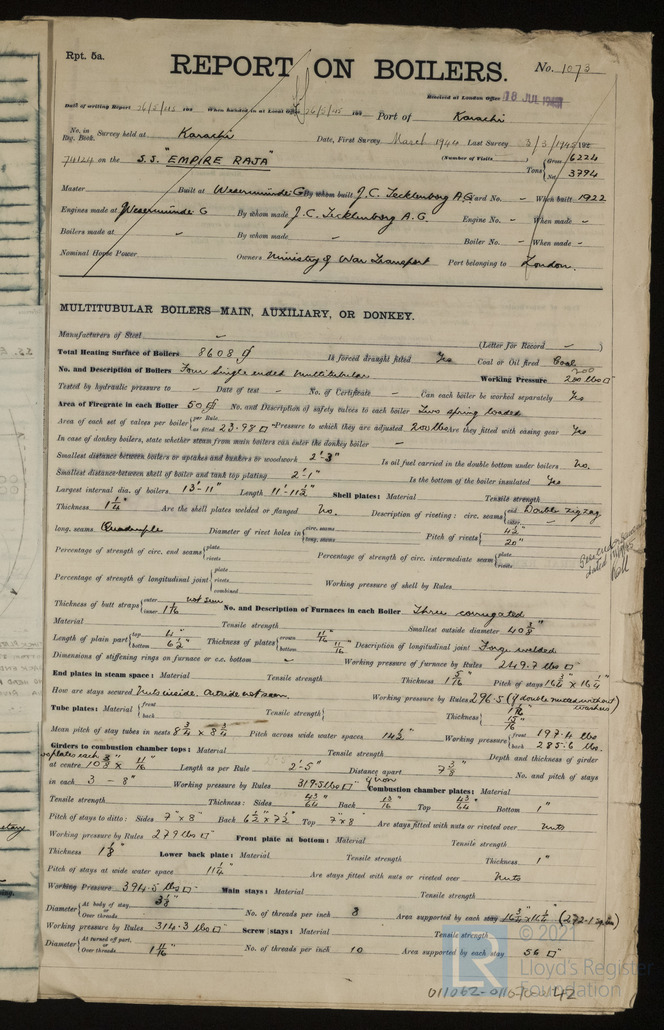 Rpt. 5a.
REPORT ON BOILERS.
No. 1073
Received at London Office 18 JUL
Date of writing Report 26/5/45 When handed in at Local Office 26/5/45 Port of Karachi
No. in Reg. Book. Survey held at Karachi Date, First Survey March 1944 Last Survey 3/5/1945
(Number of Visits )
74124 on the S.S. "EMPIRE RAJA" Tons { Gross 6224 Net 3794
Master Built at Wesermünde G By whom built J.C. Tecklenborg A.G. Yard No. - When built 1922
Engines made at Wesermünde G By whom made J.C. Tecklenborg A.G. Engine No. - When made -
Boilers made at - By whom made - Boiler No. - When made -
Nominal Horse Power Owners Ministry of War Transport Port belonging to London.
MULTITUBULAR BOILERS MAIN, AUXILIARY, OR DONKEY.
Manufacturers of Steel - (Letter for Record - )
Total Heating Surface of Boilers 8608 Is forced draught fitted Yes Coal or Oil fired Coal
No. and Description of Boilers Four Single ended Multitubular Working Pressure 200 lbs □"
Tested by hydraulic pressure to - Date of test - No. of Certificate - Can each boiler be worked separately Yes
Area of Firegrate in each Boiler 50 No. and Description of safety valves to each boiler Two spring loaded
Area of each set of valves per boiler { per Rule as fitted 23.98 □" Pressure to which they are adjusted 200 lbs Are they fitted with easing gear Yes
In case of donkey boilers, state whether steam from main boilers can enter the donkey boiler -
Smallest distance between boilers or uptakes and bunkers or woodwork 2'-3" Is oil fuel carried in the double bottom under boilers No.
Smallest distance between shell of boiler and tank top plating 2'-1" Is the bottom of the boiler insulated Yes
Largest internal dia. of boilers 13'-11" Length 11'-11½" Shell plates: Material Tensile strength
Thickness 1¼" Are the shell plates welded or flanged No. Description of riveting: circ. seams { end Double zigzag inter. -
long. seams Quadruple Diameter of rivet holes in { circ. seams long. seams Pitch of rivets { 4½" 20"
Percentage of strength of circ. end seams { plate rivets Percentage of strength of circ. intermediate seam { plate rivets
Percentage of strength of longitudinal joint { plate rivets combined Working pressure of shell by Rules
Thickness of butt straps { outer not seen inner 1 1/16 No. and Description of Furnaces in each Boiler Three corrugated
Material Tensile strength Smallest outside diameter 40 3/8"
Length of plain part { top bottom 6½" Thickness of plates { crown bottom 11/16" Description of longitudinal joint Forge welded
Dimensions of stiffening rings on furnace or c.c. bottom - Working pressure of furnace by Rules 249.7 lbs □"
End plates in steam space: Material Tensile strength Thickness 1 5/16" Pitch of stays 16¾" x 16¼"
How are stays secured Nuts inside. Outside not seen. Working pressure by Rules 296.5 (if double nutted without washers)
Tube plates: Material { front back Tensile strength { Thickness { 15/16"
Mean pitch of stay tubes in nests 8¾ x 8¾ Pitch across wide water spaces 14½" Working pressure { front 197.4 lbs back 285.6 lbs.
Girders to combustion chamber tops: Material Tensile strength Depth and thickness of girder
at centre 10 5/8" x 11/16" Length as per Rule 2'-5" Distance apart 7 3/8" No. and pitch of stays
in each 3 - 8" Working pressure by Rules 319.5 lbs □" if iron Combustion chamber plates: Material
Tensile strength Thickness: Sides 43/64 Back 13/16 Top 43/64 Bottom 1"
Pitch of stays to ditto: Sides 7" x 8" Back 6½" x 7½" Top 7" x 8" Are stays fitted with nuts or riveted over Nuts
Working pressure by Rules 279 lbs □" Front plate at bottom: Material Tensile strength
Thickness 1⅛" Lower back plate: Material Tensile strength Thickness 1"
Pitch of stays at wide water space 11¼" Are stays fitted with nuts or riveted over Nuts
Working Pressure 394.5 lbs □" Main stays: Material Tensile strength
Diameter { At body of stay, or Over threads 3⅛" No. of threads per inch 8 Area supported by each stay 16¾" x 16¼" (272.1 sq. ins)
Working pressure by Rules 314.3 lbs □" Screw stays: Material Tensile strength
Diameter { At turned off part, or Over threads 1 11/16" No. of threads per inch 10 Area supported by each stay 56 □"
© 2021
LR
Lloyd's Register
Foundation